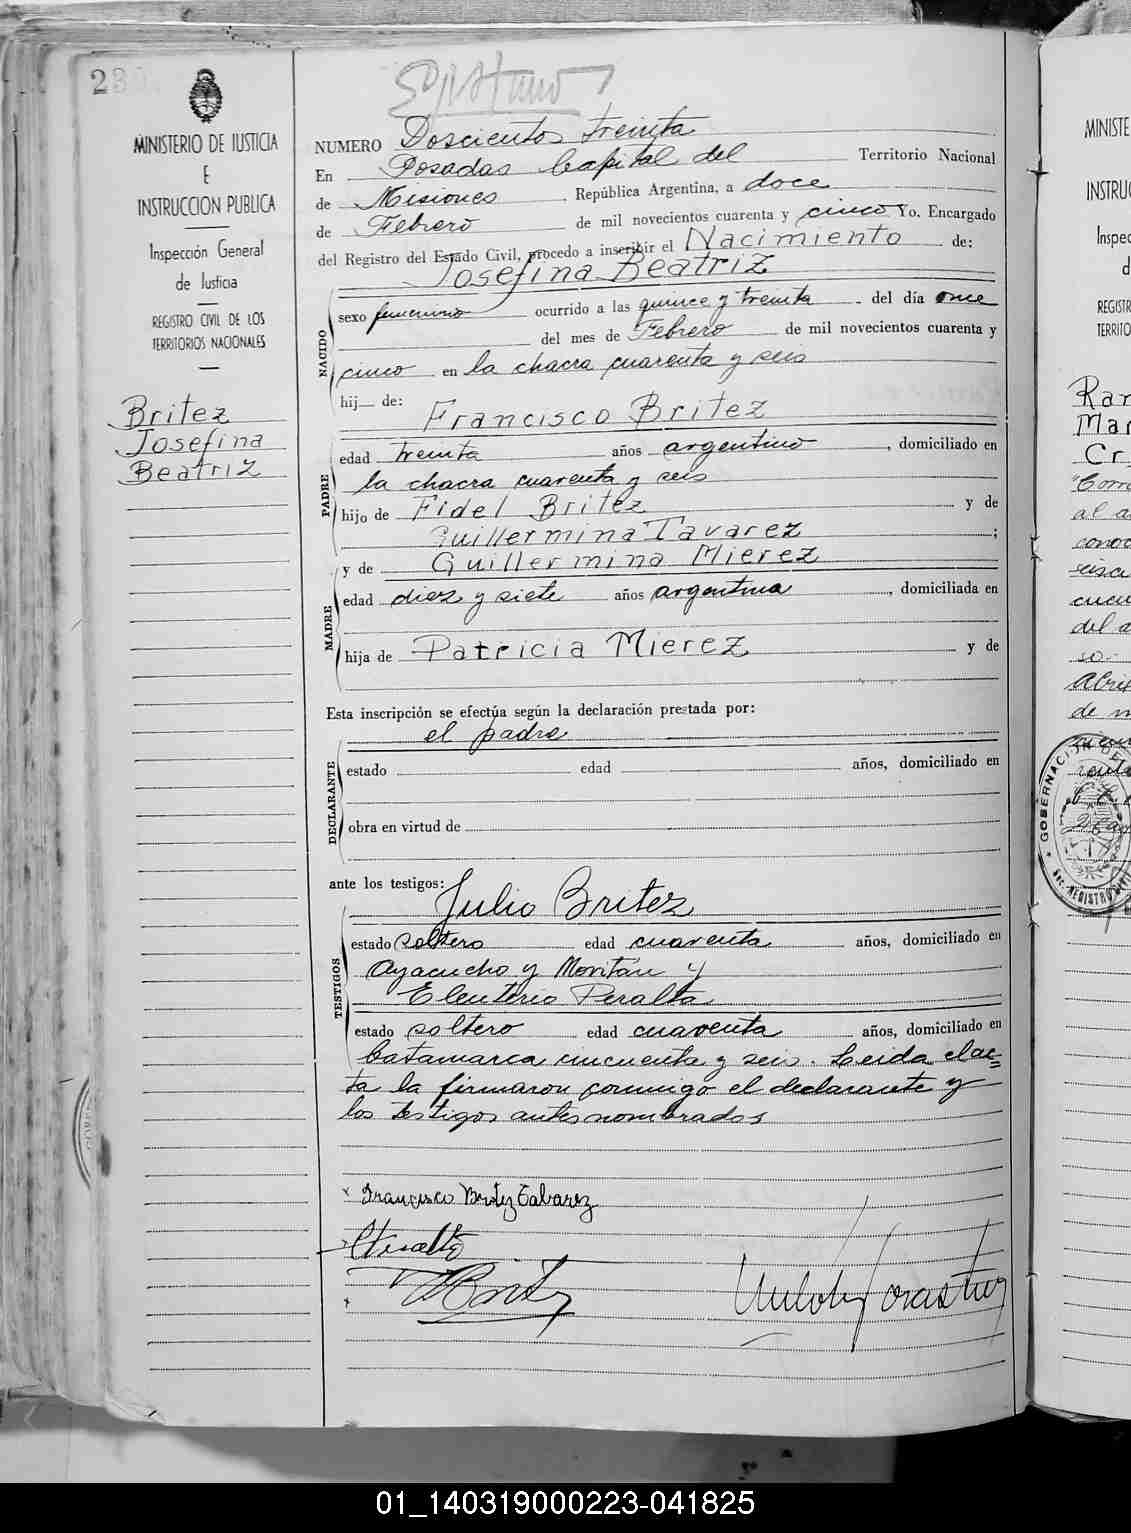 230
MINISTERIO DE JUSTICIA
E
INSTRUCCION PUBLICA
Inspección General
de Justicia
REGISTRO CIVIL DE LOS
TERRITORIOS NACIONALES
Britez
Josefina
Beatriz
NUMERO Doscientos treinta
En Posadas Capital del Territorio Nacional
de Misiones República Argentina, a doce
de Febrero de mil novecientos cuarenta y cinco Yo, Encargado
del Registro del Estado Civil, procedo a inscribir el Nacimiento de:
Josefina Beatriz
NACIDO
sexo femenino ocurrido a las quince y treinta del día once
del mes de Febrero de mil novecientos cuarenta y
cinco en la chacra cuarenta y seis
hij de:
Francisco Britez
PADRE
edad treinta años argentino, domiciliado en
la chacra cuarenta y seis
hijo de Fidel Britez y de
Guillermina Tavarez;
y de Guillermina Mierez
MADRE
edad diez y siete años argentina, domiciliada en
hija de Patricia Mierez y de
Esta inscripción se efectúa según la declaración prestada por:
el padre
DECLARANTE
estado edad años, domiciliado en
obra en virtud de
ante los testigos:
Julio Britez
TESTIGOS
estado soltero edad cuarenta años, domiciliado en
Ayacucho y
Eleuterio Peralta
estado soltero edad cuarenta años, domiciliado en
Catamarca cincuenta y seis. Leida el ac=
ta la firmaron conmigo el declarante y
los testigos antes nombrados
Francisco Britez Tabarez
EPeralta
JBritez
MINISTE
INSTRU
Inspec
d
REGISTR
TERRITO
Ran
Mar
Cr
al a
cono
del a
so.
Abril
de m
GOBERNACION DE
REGISTRO CIVIL
01_140319000223-041825